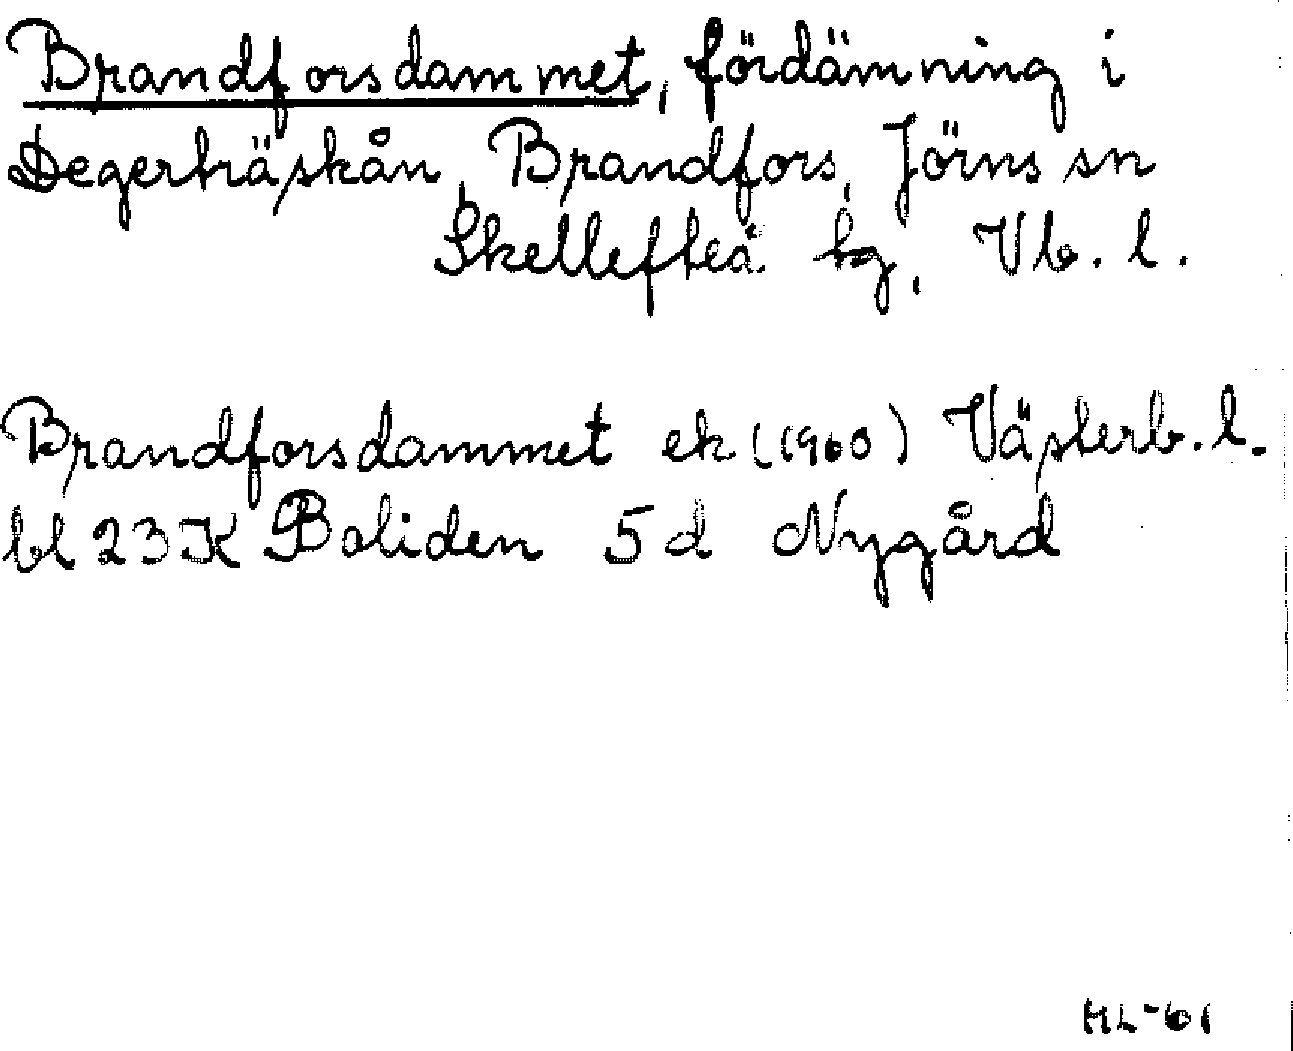 Brandforsdammet, fördämning i
Degerträskån, Brandfors, Jörns sn
Skellefteå tg, Vb. l.
Brandforsdammet ek (1960) Västerb. l.
bl 23 K Boliden 5 d Nygård
HL-61